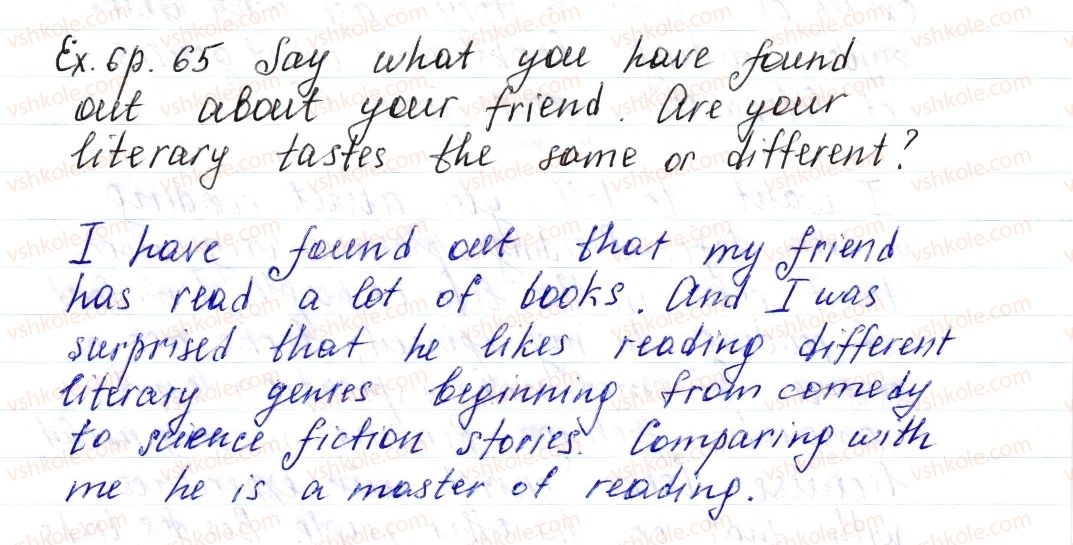 Ex. 6p. 65 Say what you have found
out about your friend. Are your
literary tastes the same or different?
I have found out that my friend
has read a lot of books. And I was
surprised that he likes reading different
literary genres beginning from comedy
to science fiction stories. Comparing with
me he is a master of reading.